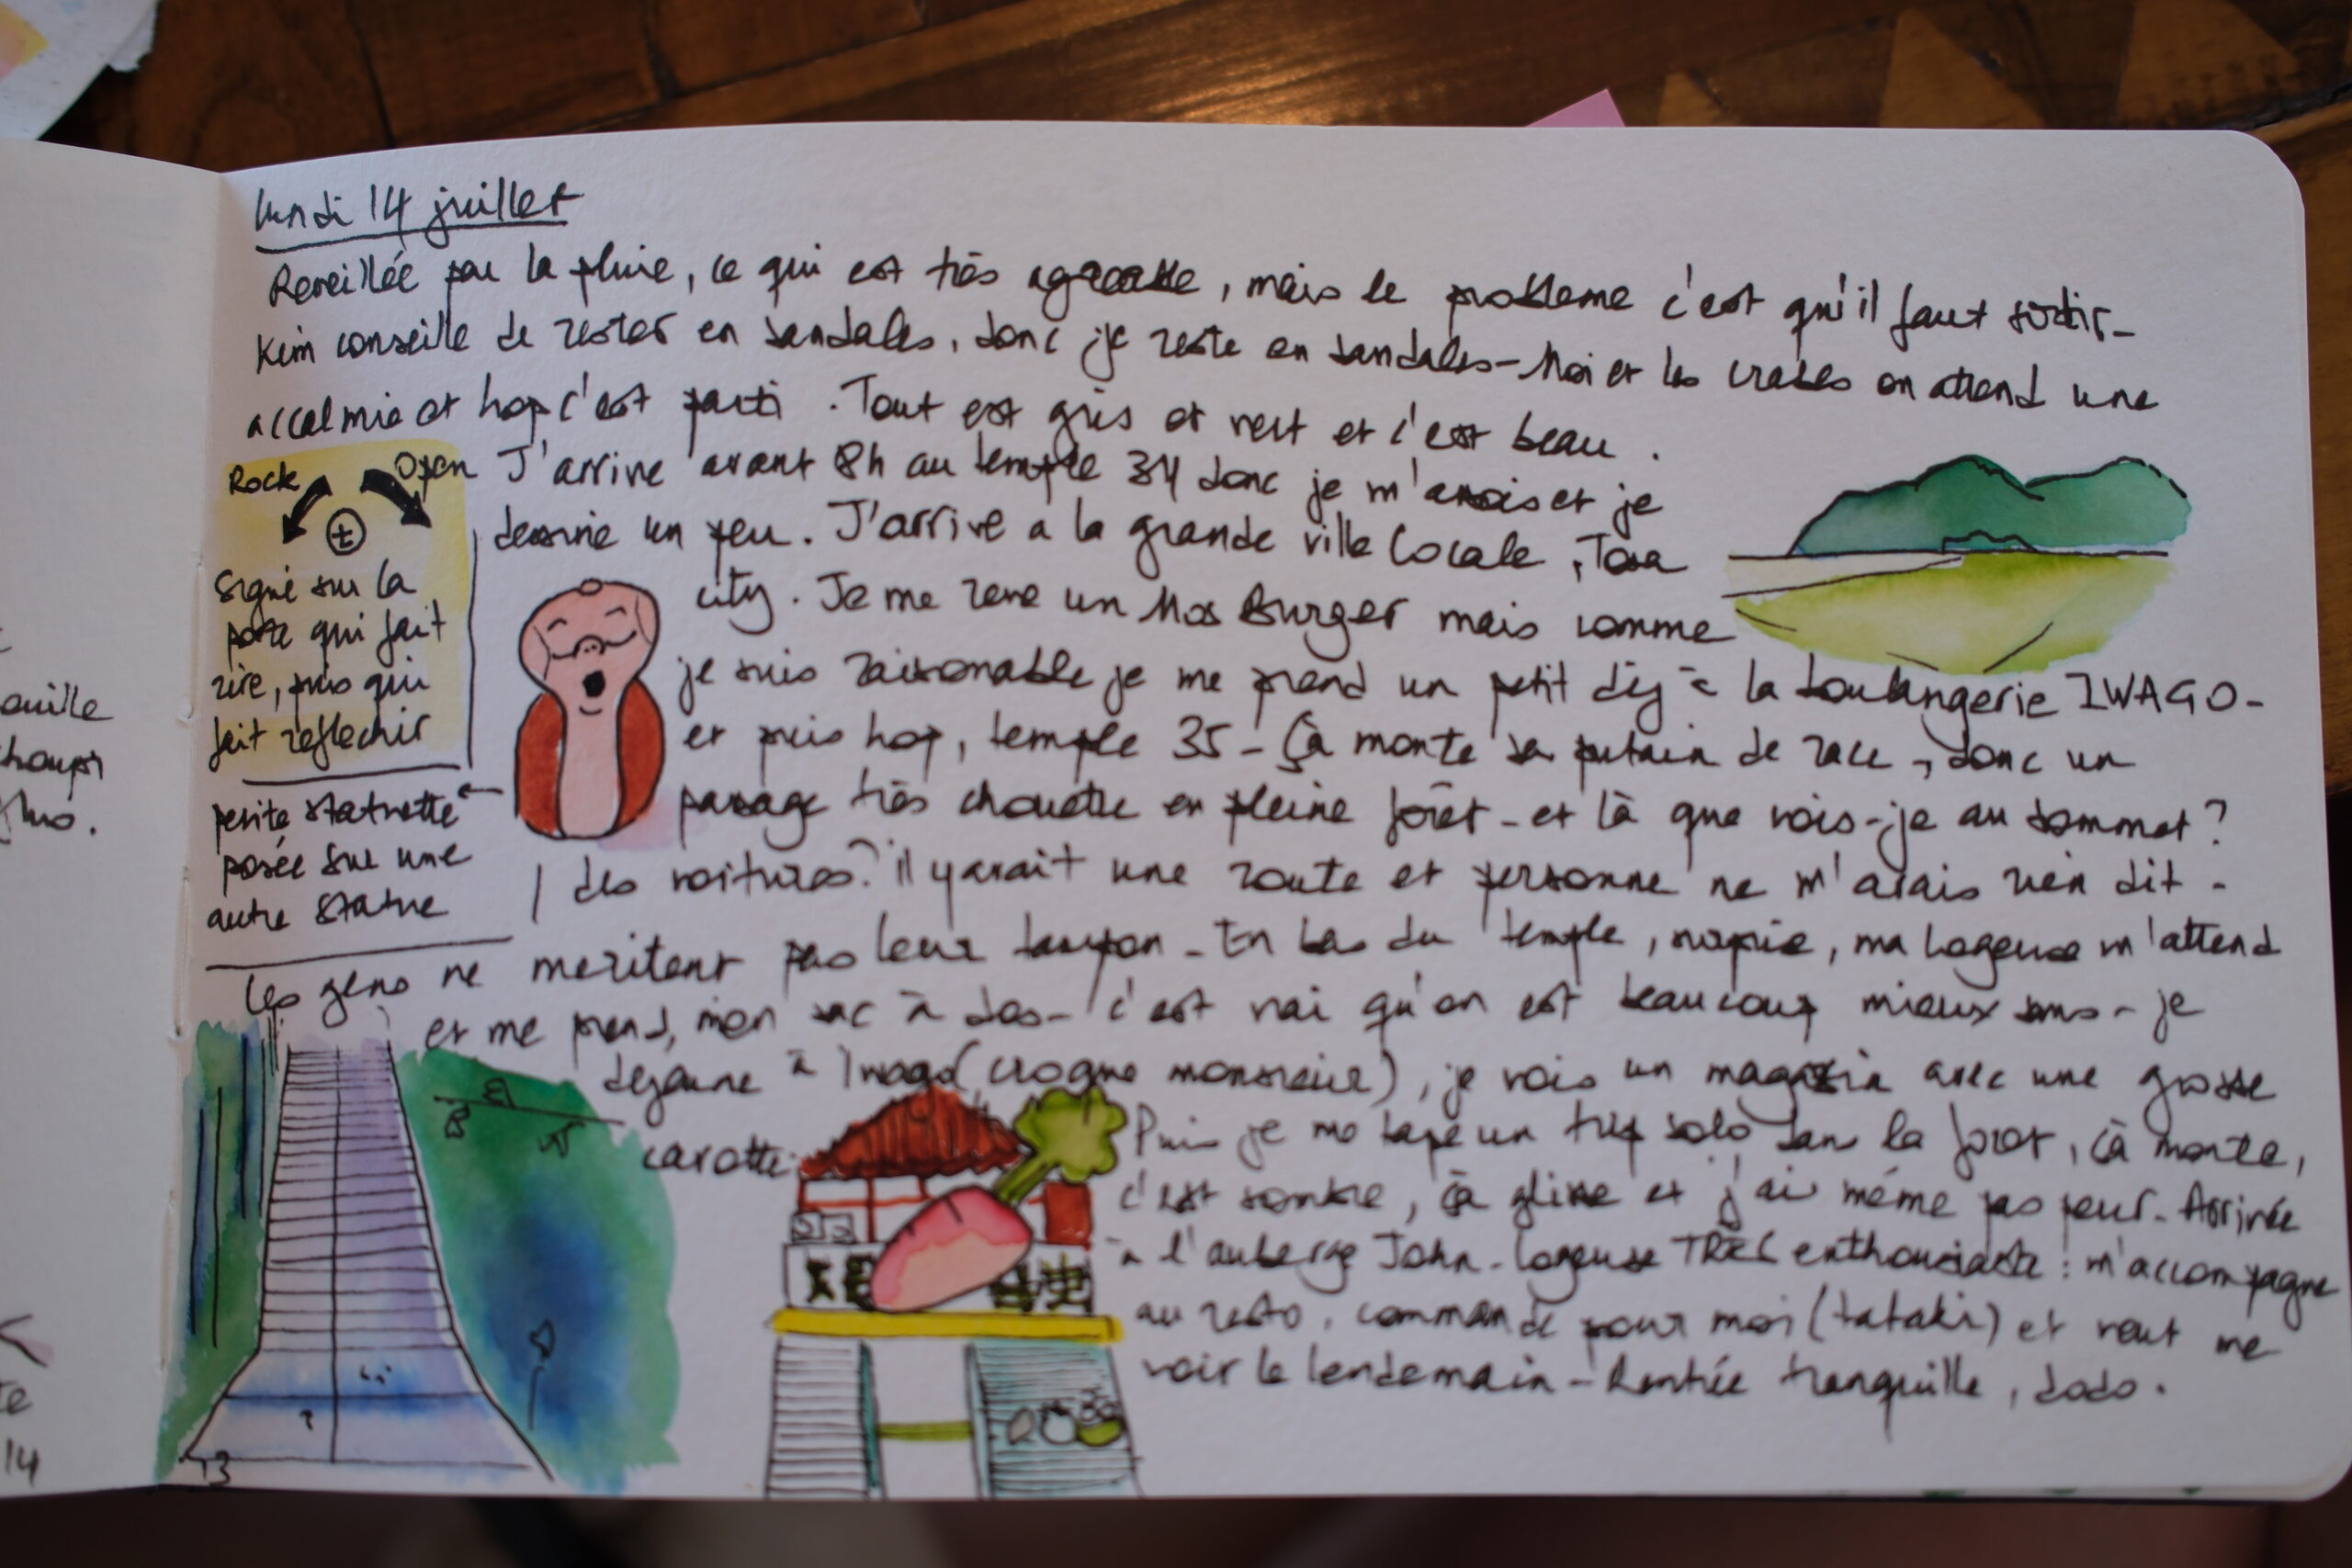 lundi 14 juillet
Reveillée par la pluie, ce qui est très agréable, mais le probleme c'est qu'il faut sortir-
Kim conseille de rester en sandales, donc je reste en sandales - Moi et les crabes on attend une
accalmie et hop c'est parti. Tout est gris et vert et c'est beau.
J'arrive avant 8h au temple 34 donc je m'assois et je
dessine un peu. J'arrive a la grande ville locale, Tosa
city. Je me reve un Mos Burger mais comme
je suis raisonable je me prend un petit dej à la boulangerie IWAGO-
et puis hop, temple 35 - Çà monte sa putain de race, donc un
passage très chouette en pleine forêt - et là que vois-je au sommet?
des voitures? il y avait une route et personne ne m'avais rien dit -
Les gens ne meritent pas leur tampon - En bas du temple, ma logeuse m'attend
et me prend, mon sac à dos - c'est vrai qu'on est beaucoup mieux sans - je
dejeune à Iwago (croque monsieur), je vois un magasin avec une grosse
carotte.
Puis je me tape un trip solo dans la foret, çà monte,
c'est sombre, çà glisse et j'ai même pas peur - Arrivée
à l'auberge John - logeuse TRES enthousiaste : m'accompagne
au resto, commande pour moi (tataki) et veut me
voir le lendemain - Rentrée tranquille, dodo.
Rock Open
signe sur la
porte qui fait
rire, puis qui
fait reflechir
petite statuette
posée sur une
autre statue
13
ouille
14